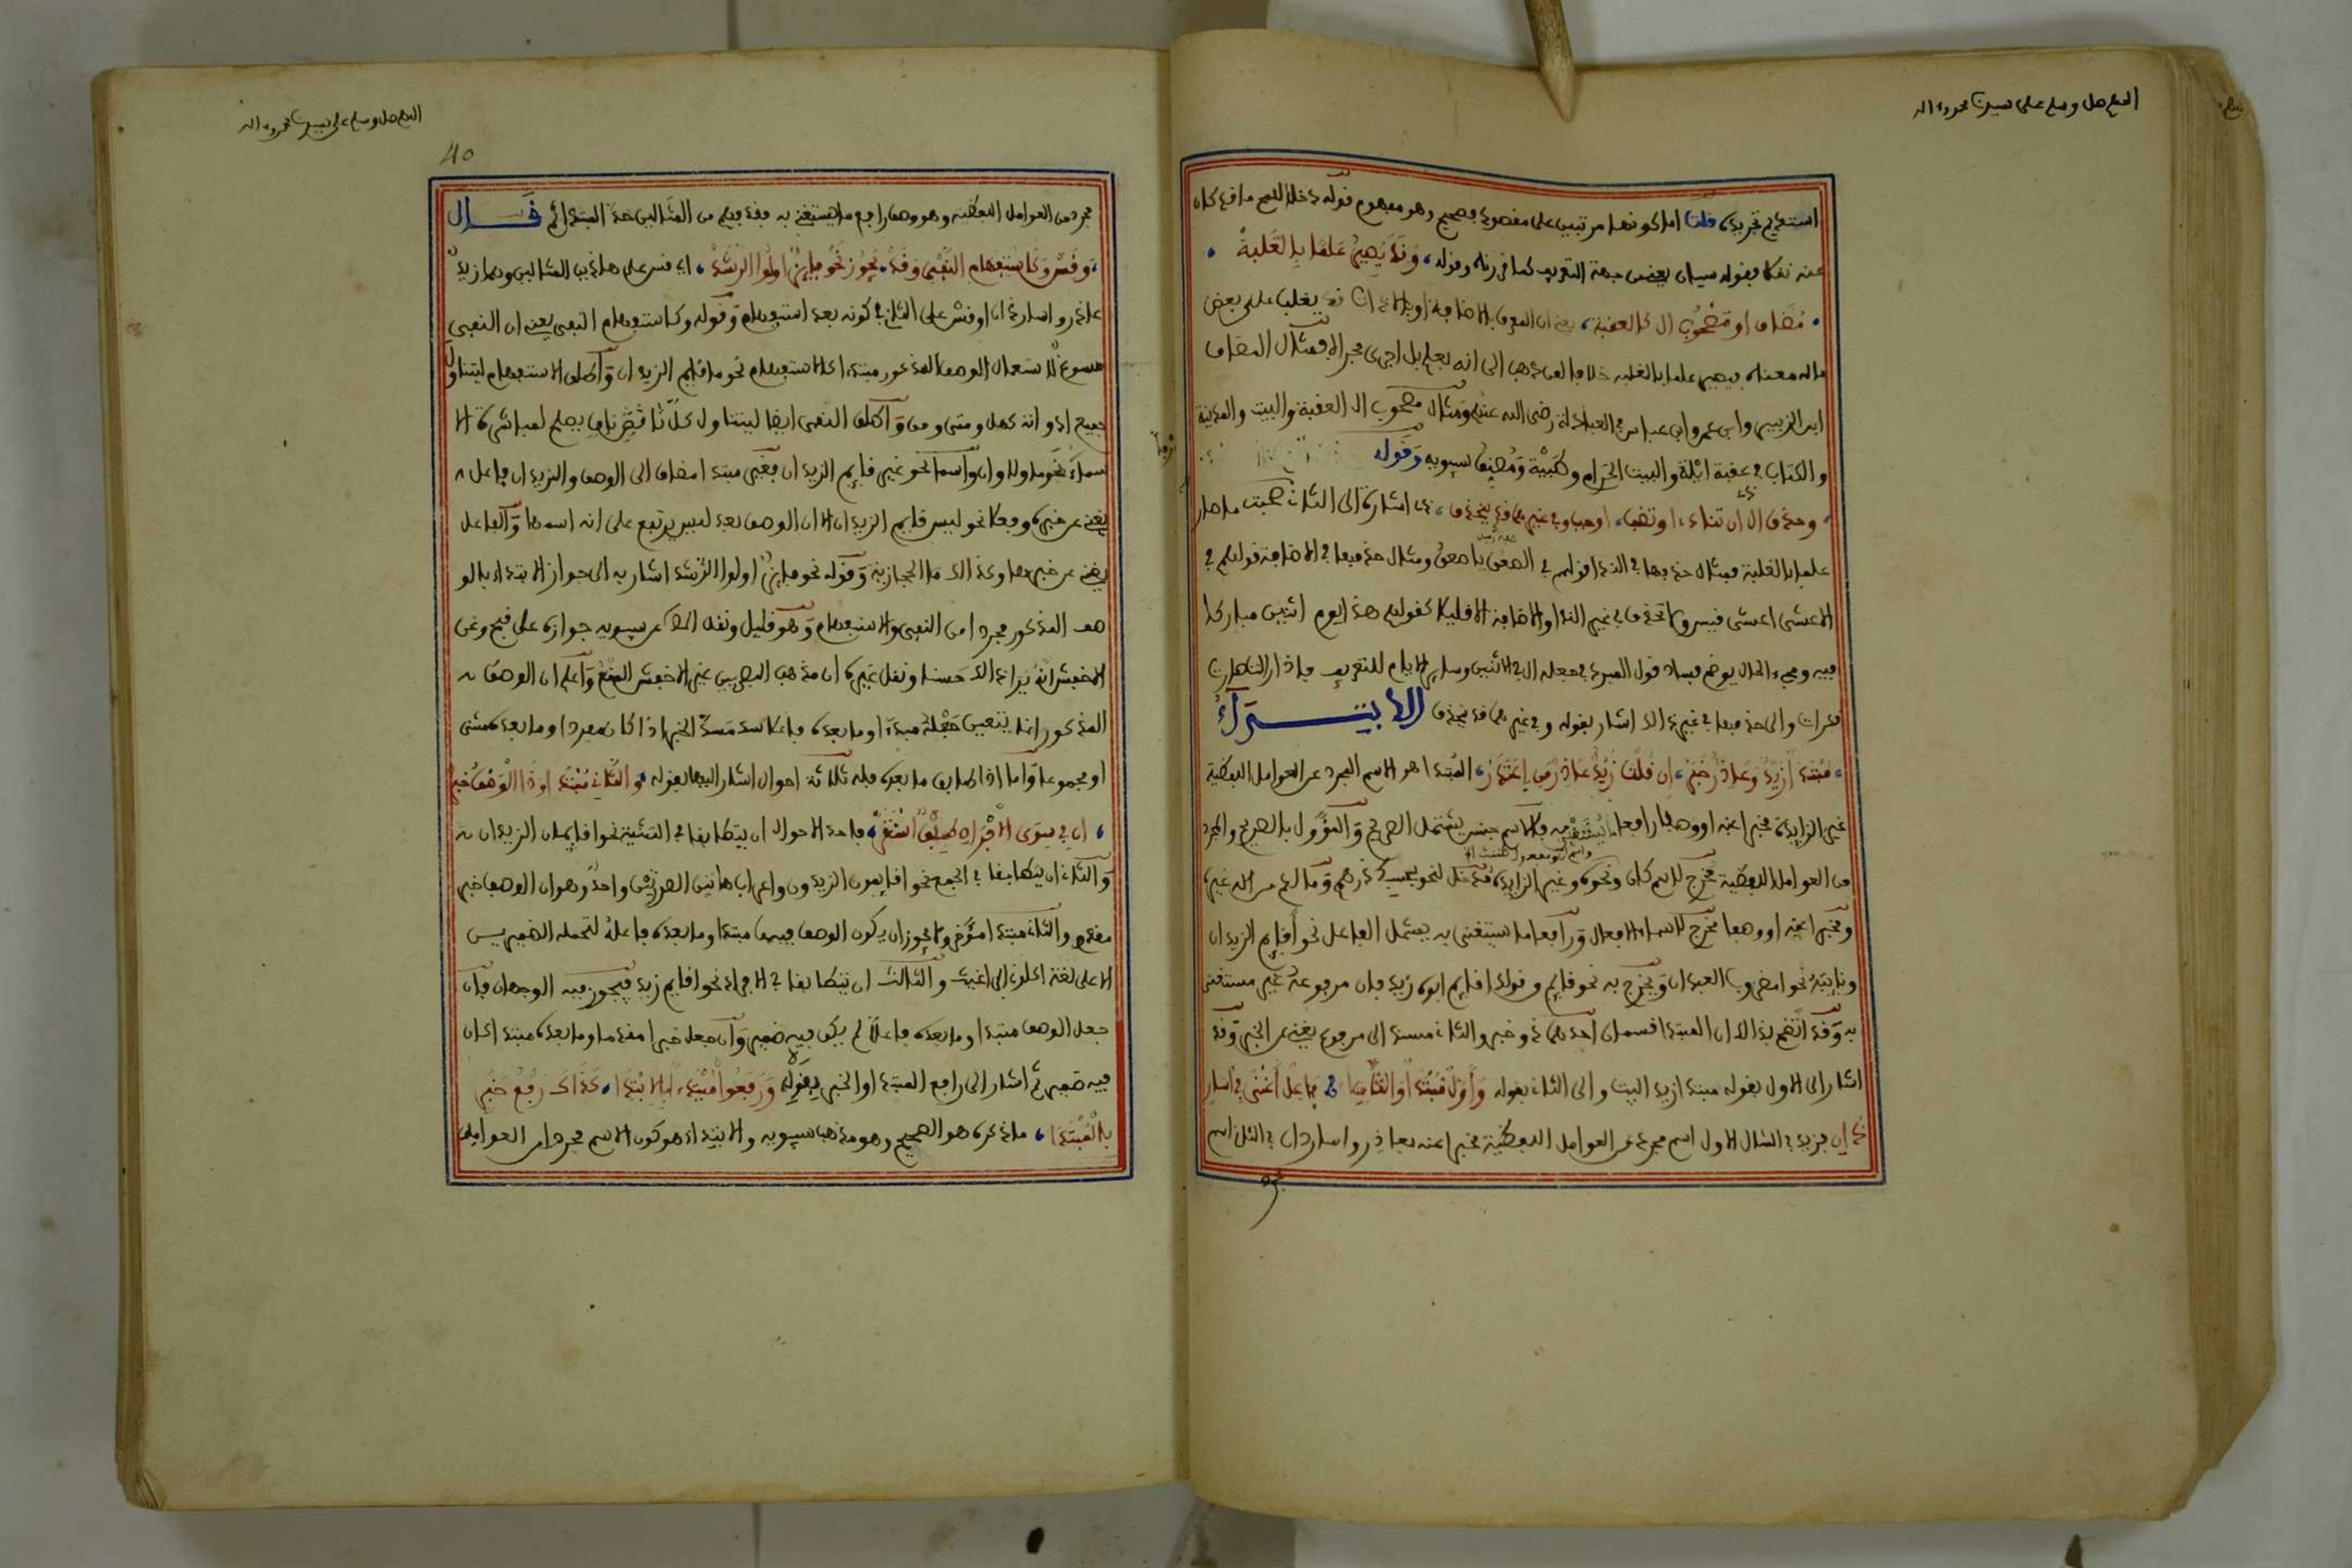 اللهم صل وسلم على سيدنا محمد وءاله
استعديم تجريده قلت اما كونهما مرتبتين على مقصوده فصحيح وهو مفهوم قوله دخلا للمح ما قد كان
عنه نقلا فقوله سيان يعني من جهة التعريف كما قررناه وقوله وقد يصير علما بالغلبة
مضاف او مصحوب ال كالعقبة يعني ان المعرف بالاضافة او بالاداة قد يغلب على بعض
ما له معناه فيصير علما بالغلبة خلافا لمن ذهب الى انه بعلم بل اجرى مجراه فمثال المضاف
ابن الزبير وابن عمر وابن عباس في العبادلة رضي الله عنهم ومثال مصحوب ال العقبة والبيت والمدينة
والكتاب في عقبة ايلة والبيت الحرام وطيبة ومصنف سيبويه وقوله
وحذف ال ذي ان تناد او تضف اوجب وفي غيرهما قد ينحذف ذي اشارة الى التي صحبت ما صار
علما بالغلبة فمثال حذفها في الندا قولهم في الصعق يا صعق ومثال حذفها في الاضافة قولهم في
الاعشى اعشى قيس ولا تحذف في غير الندا والاضافة الا قليلا كقولهم هذا يوم اثنين مباركا
فيه ومجيء الحال يوضح فساد قول المبرد في جعله ال في الاثنين وساير الايام للتعريف فاذا زالت صارت
نكرات والى حذفها في غير ذلك اشار بقوله وفي غيرهما قد ينحذف الابتداء
مبتدأ زيد وعاذر خبر ان قلت زيد عاذر من اعتذر المبتدا هو الاسم المجرد عن العوامل اللفظية
غير الزايدة مخبرا عنه او وصفا رافعا لمستغنى به فالاسم جنس يشتمل الصريح والمؤول بالصريح والمجرد
من العوامل اللفظية مخرج لاسم كان ونحوه وغير الزايدة مدخل لنحو بحسبك درهم وما لكم من اله غيره
ومخبرا عنه او وصفا مخرج لاسماء الافعال ورافعا ما يستغنى به يشمل الفاعل نحو أقايم الزيدان
ونايبه نحو امضروب العبدان ويخرج به نحو قايم وقولك اقايم ابوه زيد فان مرفوعه غير مستغنى
به وقد اتضح بذلك ان المبتدا قسمان احدهما ذو خبر والثاني مسند الى مرفوع يغني عن الخبر وقد
اشار الى الاول بقوله مبتدا زيد البيت والى الثاني بقوله وأول مبتدأ والثاني فاعل أغنى في أسار
ذان فزيد في المثال الاول اسم مجرد عن العوامل اللفظية مخبرا عنه بعاذر واسار ذان في الثاني اسم
مجرد
اللهم صل وسلم على سيدنا محمد وءاله
40
مجرد من العوامل اللفظية وهو وصف رافع ما يستغنى به فقد فهم من المثالين حد المبتدا ثم قــال
وقس وكاستفهام النفي وقد يجوز نحو فايز اولوا الرشد اي قس على هاذين المثالين وهما زيد
عاذر واسار ذان او قس على الثاني كونه بعد استفهام وقوله وكاستفهام النفي يعني ان النفي
مسوغ لاستعمال الوصف المذكور مبتدا كالاستفهام نحو ما قايم الزيدان واطلق الاستفهام ليتناول
جميع ادواته كهل ومتى ومن واطلق النفي ايضا ليتناول كل ناف يصلح لمباشرة الا
سماء نحو ما ولا وان واسما نحو غير قايم الزيدان فغير مبتدا مضاف الى الوصف والزيدان فاعل
يغني عن خبره وفعلا نحو ليس قايم الزيدان الا ان الوصف بعد ليس يرتفع على انه اسمها والفاعل
يغني عن خبرها وكذلك ما الحجازية وقوله نحو فايز اولوا الرشد اشار به الى جواز الابتداء بالو
صف المذكور مجردا من النفي والاستفهام وهو قليل ونقل عن سيبويه جوازه على قبح وعن
الاخفش انه يرا ذلك حسنا ونقل غيره ان مذهب البصريين غير الاخفش المنع واعلم ان الوصف
المذكور انما يتعين جعله مبتدءا وما بعده فاعلا سد مسد الخبر اذا كان مفردا وما بعده مثنى
او مجموعا واما اذا طابق ما بعده فله ثلاثة احوال اشار اليها بقوله والثاني مبتدا وذا الوصف خبر
ان في سوى الافراد طبقا استقر فاحد الاحوال ان يتطابقا في التثنية نحو اقايمان الزيدان
والثاني ان يتطابقا في الجمع نحو اقايمون الزيدون واعراب هاذين الضربين واحد وهو ان الوصف خبر
مقدم والثاني مبتدا مؤخر ولا يجوز ان يكون الوصف فيهما مبتدا وما بعده فاعل لتحمله الضمير
الا على لغة اكلوني البراغيث والثالث ان يتطابقا في الافراد نحو اقايم زيد فيجوز فيه الوجهان فان
جعل الوصف مبتدا وما بعده فاعلا لم يكن فيه ضمير وان جعل خبرا مقدما وما بعده مبتدا كان
فيه ضمير ثم اشار الى رافع المبتدا والخبر بقوله ورفعوا مبتدأ بالابتدا كذاك رفع خبر
بالمبتدا ما ذكره هو الصحيح وهو مذهب سيبويه والابتداء هو كون الاسم مجردا من العوامل